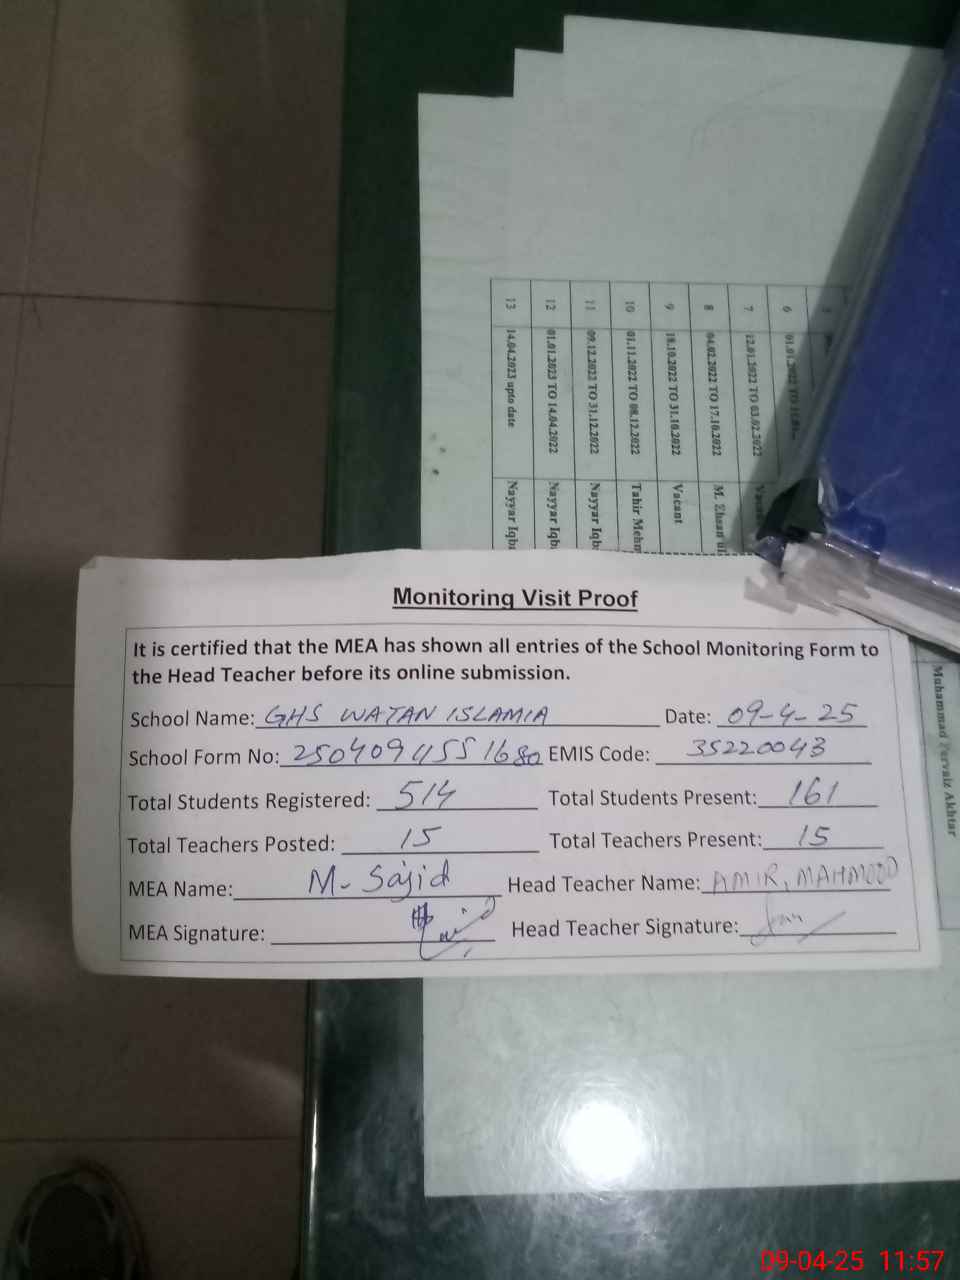 5
6 01.01.2022 TO
7 12.01.2022 TO 03.02.2022 Vacant
8 04.02.2022 TO 17.10.2022 M. Ehsan ul
9 18.10.2022 TO 31.10.2022 Vacant
10 01.11.2022 TO 08.12.2022 Tahir Mehm
11 09.12.2022 TO 31.12.2022 Nayyar Iqb
12 01.01.2023 TO 14.04.2022 Nayyar Iqb
13 14.04.2023 upto date Nayyar Iqb
Muhammad Pervaiz Akhtar
Monitoring Visit Proof
It is certified that the MEA has shown all entries of the School Monitoring Form to
the Head Teacher before its online submission.
School Name: GHS WATAN ISLAMIA Date: 09-4-25
School Form No: 2504094551680 EMIS Code: 35220043
Total Students Registered: 514 Total Students Present: 161
Total Teachers Posted: 15 Total Teachers Present: 15
MEA Name: M- Sajid Head Teacher Name: AMIR, MAHMOOD
MEA Signature: Head Teacher Signature:
09-04-25 11:57